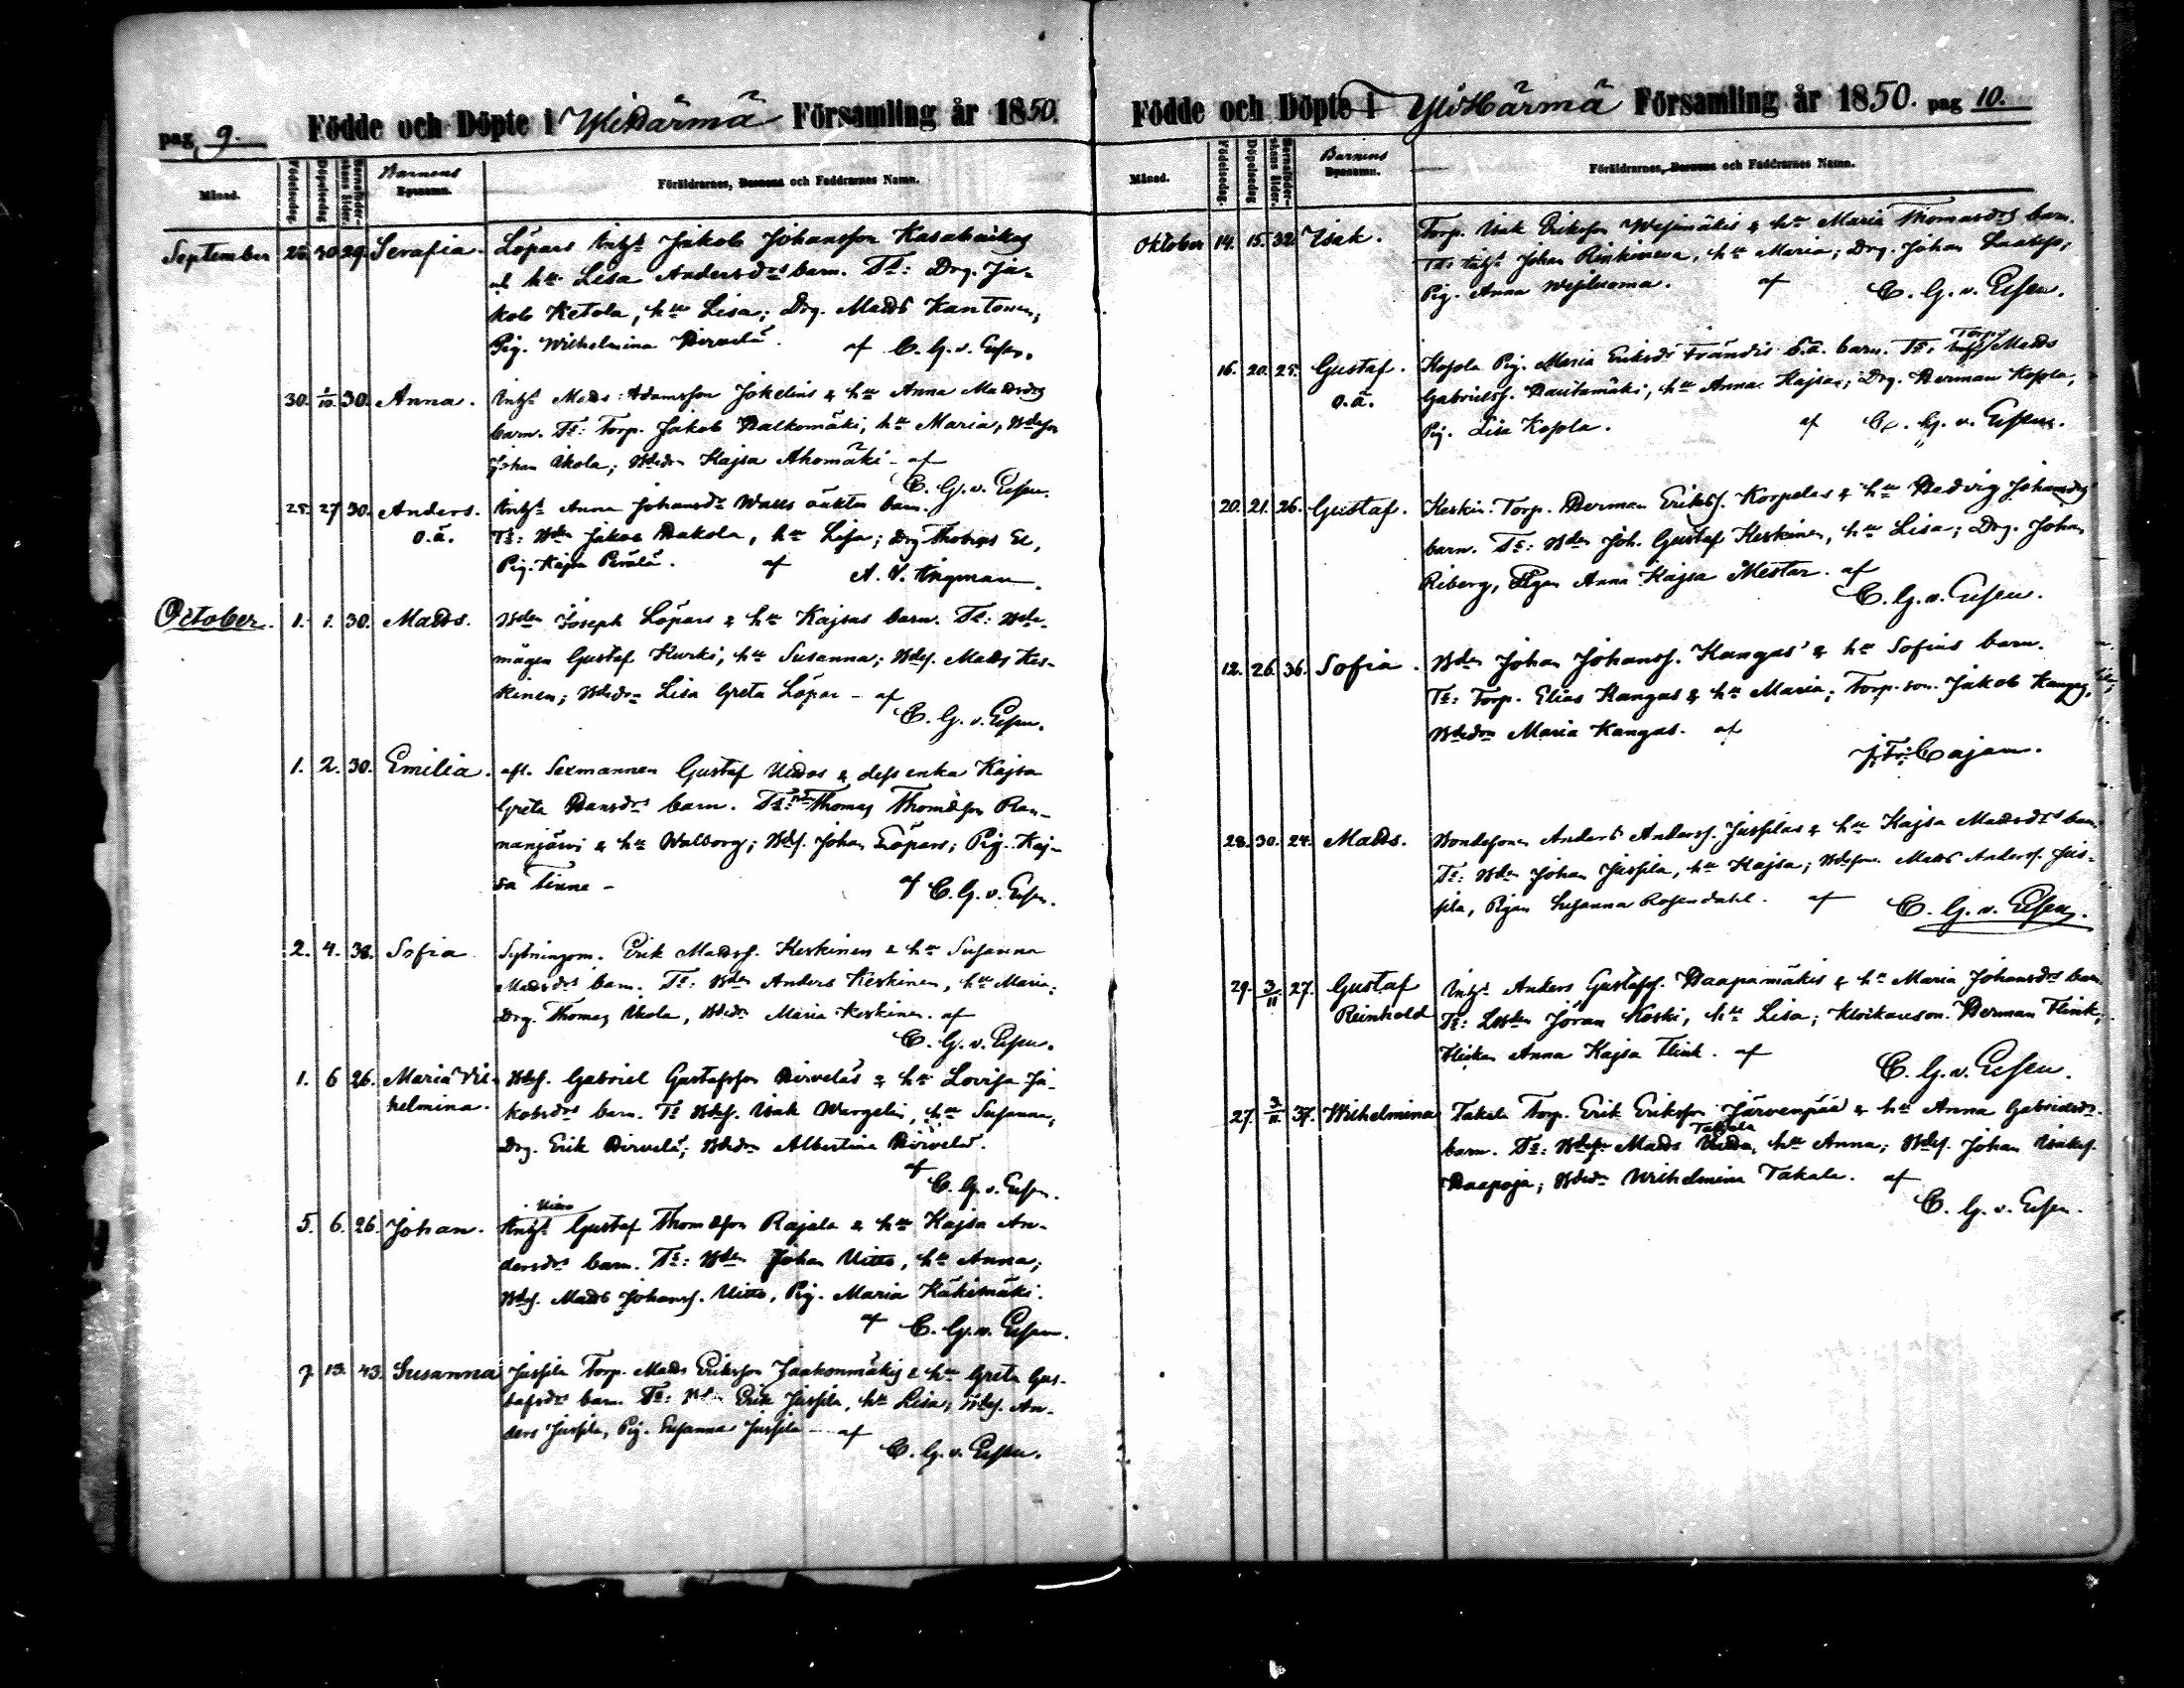 pag 9. Födde och Döpte i Yli Härmä Församling år 1850.
Månad. Födelsedag. Döpelsedag Barnaföderskans ålder. Barnens Egnamn. Föräldrarnes, Barnens och Faddrarnes Namn.
September 28. 30 29. Serafia. Löpars Inhs Jakob Johansson
hu Lisa Andersdrs barn. Ts: Drg. Ja-
kob Ketola, hu Lisa; Drg. Matts Kantonen,
Pig. Wilhelmina Hirvelä. af C. G. v. Essen.
30. 1/10 30. Anna. Inhs Matts Adamsson Jokelins & hu Anna Mattsdrs
barn. Ts: Torp. Jakob Malkomäki, hu Maria, Bdeson
Johan Ukola; Bdedr Kajsa Ahomäki - af
C. G. v. Essen.
25. 27 30. Anders. Inhs Anna Johansdr Walls oäkta barn.
o.ä. Ts: Bden Jakob Hakola, hu Lisa; Drg Thomas
Pig. Kajsa Perälä. af A. V. Ingman.
October. 1. 1. 30. Matts. Bden Joseph Löpars & hu Kajsas barn. Ts: Bde-
mågen Gustaf Kurki, hu Susanna; Bdes. Matts Kes-
kinen; Bdedr Lisa Greta Löpar - af
C. G. v. Essen.
1. 2. 30. Emilia. afl. Sexmannen Gustaf Uitos & dess enka Kajsa
Greta Hansdrs barn. Ts: Bden Thomas Thomasson Ran-
nanjärvi & hu Walborg; Bdes. Johan Löpars; Pig. Kaj-
sa Tinne - af C. G. v. Essen.
2. 4. 38. Sofia Sytningsm. Erik Mattss. Keskinen & hu Susanna
Mattsdrs barn. Ts: Bden Anders Keskinen, hu Maria;
Drg. Thomas Ukola, Bdedr Maria Keskinen. af
C. G. v. Essen.
1. 6 26. Maria Vil- Bdes. Gabriel Gustafsson Hirveläs & hu Lovisa Ja-
helmina. kobsdrs barn. Ts Bdes. Isak Wargelin, hu Susanna,
Drg. Erik Hirvelä; Bdedr Albertina Hirvelä.
af C. G. v. Essen.
Uitto
5. 6. 26. Johan. Inhs Gustaf Thomasson Rajala & hu Kajsa An-
dersdrs barn. Ts: Bden Johan Uitto, hu Anna;
Bdes. Matts Johanss. Uitto, Pig. Maria Käkimäki.
af C. G. v. Essen.
7. 13. 43. Susanna Jussila Torp. Matts Eriksson Jaakonmäkis & hu Greta Gus-
tafsdrs barn. Ts: Bden Erik Jussila, hu Lisa; Bdes. An-
ders Jussila, Pig. Susanna Jussila - af
C. G. v. Essen.
Födde och Döpte i Yli Härmä Församling år 1850. pag 10.
Månad. Födelsedag. Döpelsedag Barnaföderskans ålder. Barnens Egnamn. Föräldrarnes, Barnens och Faddrarnes Namn.
Oktober 14. 15. 32 Isak. Torp. Isak Eriksson Wesimäkis & hu Maria Thomasdrs barn.
Ts: Inhs Johan Rinkineva, hu Maria; Drg. Johan
Pig. Anna Wesiluoma. af C. G. v. Essen.
Torp.
16. 20. 25. Gustaf. Kopola Pig. Maria Eriksdr Frändis o.ä. barn. Ts: Inhs Matts
o.ä. Gabrielss. Hautamäki, hu Anna Kajsa; Drg. Herman Kopola,
Pig. Lisa Kopola. af C. G. v. Essen.
20. 21. 26. Gustaf. Keskin. Torp. Herman Erikss. Korpelas & hu Hedvig Johansdrs
barn. Ts: Bden Joh. Gustaf Keskinen, hu Lisa; Drg. Johan
Riberg, Pigan Anna Kajsa Mestar. af
C. G. v. Essen.
12. 26. 36. Sofia. Bden Johan Johanss. Kangas & hu Sofias barn.
Ts: Torp. Elias Kangas & hu Maria; Torp. son. Jakob Kangas,
Bdedr Maria Kangas. af
J. Fr. Cajan.
28. 30. 24. Matts. Bondesonen Anders Anderss. Jussilas & hu Kajsa Mattsdrs barn.
Ts: Bden Johan Jussila, hu Kajsa; Bdesonen Matts Anderss. Jus-
sila, Pigan Susanna Rosendahl. af C. G. v. Essen.
29. 3/11 27. Gustaf Inhs Anders Gustafss. Haapamäkis & hu Maria Johansdrs barn.
Reinhold Ts: Bden Göran Koski, hu Lisa; Klockareson. Herman Flink;
Flickan Anna Kajsa Flink. af
C. G. v. Essen.
27. 3/11. 37. Wilhelmina Takala Torp. Erik Eriksson Järvenpää & hu Anna Gabrielsdrs
Takala
barn. Ts: Bdes. Matts hu Anna; Bdes. Johan Isakss.
Haapoja; Bdedr Wilhelmina Takala. af
C. G. v. Essen.